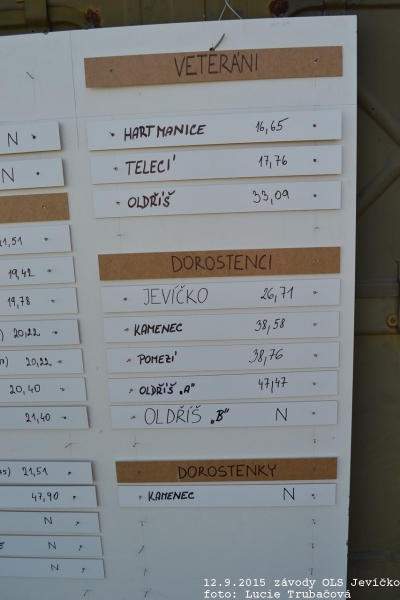 VETERÁNI
HARTMANICE 16,65
TELECÍ 17,76
OLDŘÍŠ 33,09
DOROSTENCI
JEVÍČKO 26,71
KAMENEC 38,58
POMEZÍ 38,76
OLDŘÍŠ „A" 47,47
OLDŘÍŠ „B" N
DOROSTENKY
KAMENEC N
N
N
21,51
19,42
19,78
20,22
20,22
20,40
21,40
21,51
47,90
N
N
N
12.9.2015 závody OLS Jevíčko
foto: Lucie Trubačová